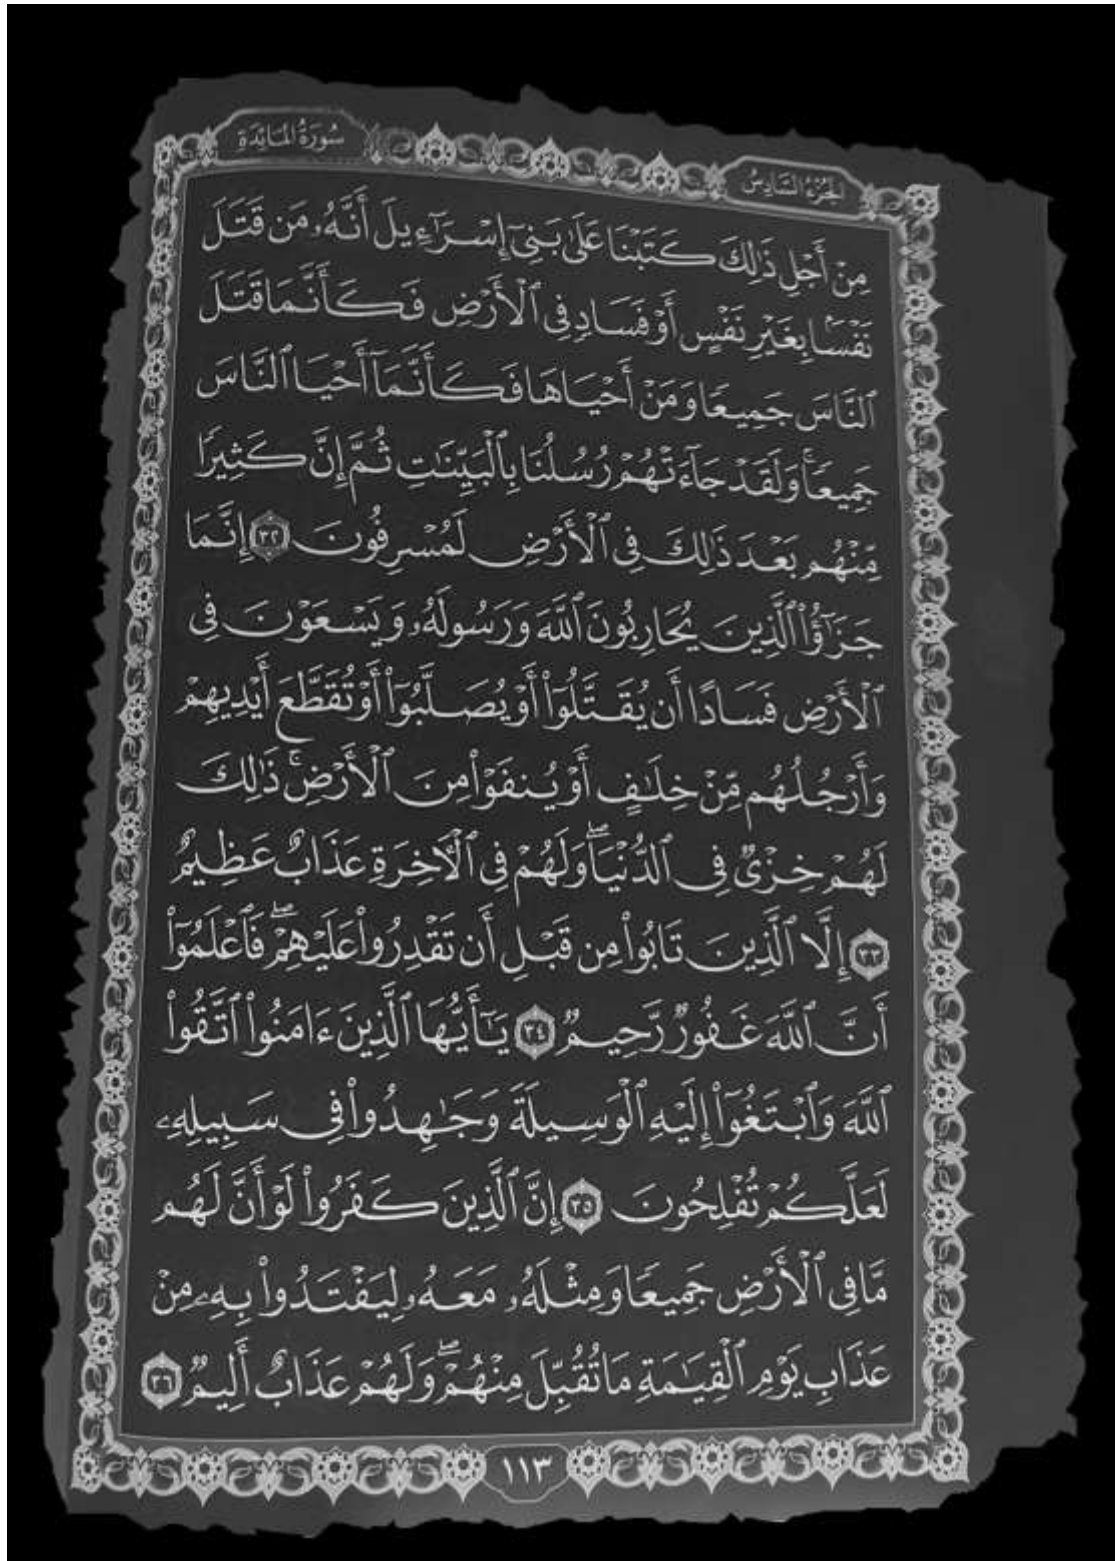 سُورَةُ المَائِدَةِ
الجُزْءُ السَّادِسُ
مِنْ أَجْلِ ذَٰلِكَ كَتَبْنَا عَلَىٰ بَنِىٓ إِسْرَٰٓءِيلَ أَنَّهُۥ مَن قَتَلَ
نَفْسًۢا بِغَيْرِ نَفْسٍ أَوْ فَسَادٍ فِى ٱلْأَرْضِ فَكَأَنَّمَا قَتَلَ
ٱلنَّاسَ جَمِيعًا وَمَنْ أَحْيَاهَا فَكَأَنَّمَآ أَحْيَا ٱلنَّاسَ
جَمِيعًاۚ وَلَقَدْ جَآءَتْهُمْ رُسُلُنَا بِٱلْبَيِّنَٰتِ ثُمَّ إِنَّ كَثِيرًا
مِّنْهُم بَعْدَ ذَٰلِكَ فِى ٱلْأَرْضِ لَمُسْرِفُونَ ٣٢ إِنَّمَا
جَزَٰٓؤُا۟ ٱلَّذِينَ يُحَارِبُونَ ٱللَّهَ وَرَسُولَهُۥ وَيَسْعَوْنَ فِى
ٱلْأَرْضِ فَسَادًا أَن يُقَتَّلُوٓا۟ أَوْ يُصَلَّبُوٓا۟ أَوْ تُقَطَّعَ أَيْدِيهِمْ
وَأَرْجُلُهُم مِّنْ خِلَٰفٍ أَوْ يُنفَوْا۟ مِنَ ٱلْأَرْضِۚ ذَٰلِكَ
لَهُمْ خِزْىٌ فِى ٱلدُّنْيَاۖ وَلَهُمْ فِى ٱلْءَاخِرَةِ عَذَابٌ عَظِيمٌ
٣٣ إِلَّا ٱلَّذِينَ تَابُوا۟ مِن قَبْلِ أَن تَقْدِرُوا۟ عَلَيْهِمْۖ فَٱعْلَمُوٓا۟
أَنَّ ٱللَّهَ غَفُورٌ رَّحِيمٌ ٣٤ يَٰٓأَيُّهَا ٱلَّذِينَ ءَامَنُوا۟ ٱتَّقُوا۟
ٱللَّهَ وَٱبْتَغُوٓا۟ إِلَيْهِ ٱلْوَسِيلَةَ وَجَٰهِدُوا۟ فِى سَبِيلِهِۦ
لَعَلَّكُمْ تُفْلِحُونَ ٣٥ إِنَّ ٱلَّذِينَ كَفَرُوا۟ لَوْ أَنَّ لَهُم
مَّا فِى ٱلْأَرْضِ جَمِيعًا وَمِثْلَهُۥ مَعَهُۥ لِيَفْتَدُوا۟ بِهِۦ مِنْ
عَذَابِ يَوْمِ ٱلْقِيَٰمَةِ مَا تُقُبِّلَ مِنْهُمْۖ وَلَهُمْ عَذَابٌ أَلِيمٌ ٣٦
١١٣